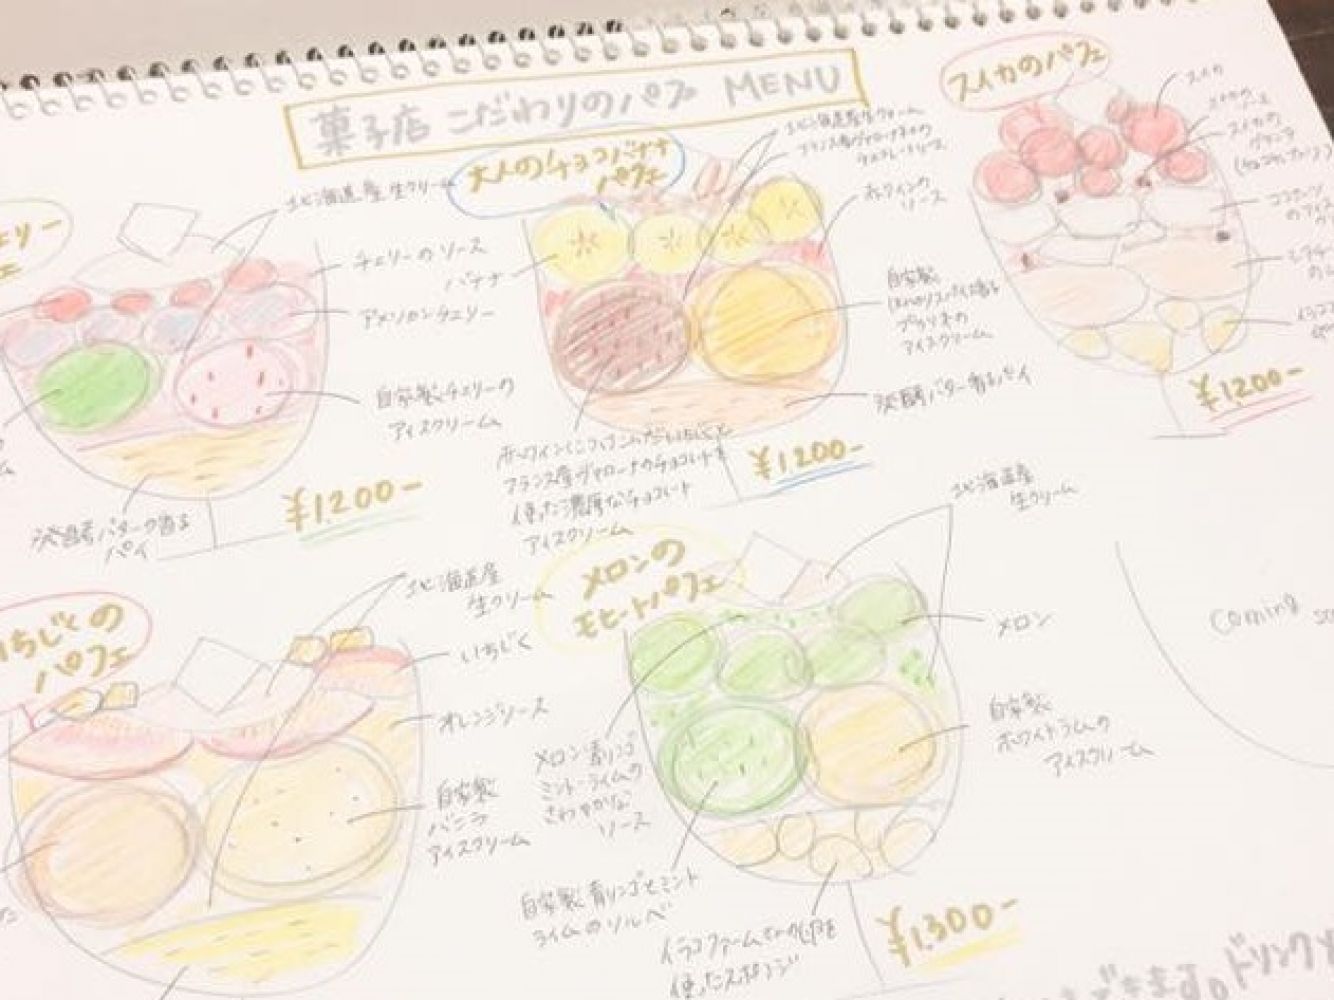 菓子店 こだわりのパフェ MENU
ェリー
ェ
北海道産生クリーム
チェリーのソース
アメリカンチェリー
自家製チェリーの
アイスクリーム
発酵バター香る
パイ
¥1200-
大人のチョコバナナ
パフェ
北海道産生クリーム
フランス産ヴァローナの
チョコレートソース
バナナ
赤ワインの
ソース
自家製
アイスクリーム
発酵バター香るパイ
フランス産ヴァローナのチョコレートを
使った濃厚なチョコレート
アイスクリーム
¥1200-
スイカのパフェ
スイカ
スイカの
ソース
スイカの
グラニテ
ココナッツ
のアイス
¥1200-
いちじくの
パフェ
北海道産
生クリーム
いちじく
オレンジソース
自家製
バニラ
アイスクリーム
メロンの
モヒートパフェ
北海道産
生クリーム
メロン
自家製
ホワイトラムの
アイスクリーム
メロン・青リンゴ
ミント・ライムの
さわやかな
ソース
自家製青リンゴとミント
ライムのソルベ
イラコファームさんの卵を
使ったスポンジ
¥1,300-
coming so